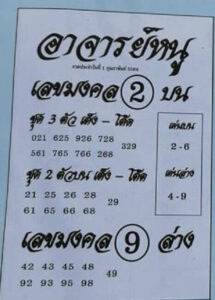 อาจารย์หนู
งวดประจำวันที่ 1 กุมภาพันธ์ 2564
เลขมงคล 2 บน
ชุด 3 ตัว เต็ง - โต๊ด
021 625 926 728
329
561 765 766 268
เด่นบน
2 - 6
ชุด 2 ตัวบน เต็ง - โต๊ด
21 25 26 28
29
61 65 66 68
เด่นล่าง
4 - 9
เลขมงคล 9 ล่าง
42 43 45 48
49
92 93 95 98